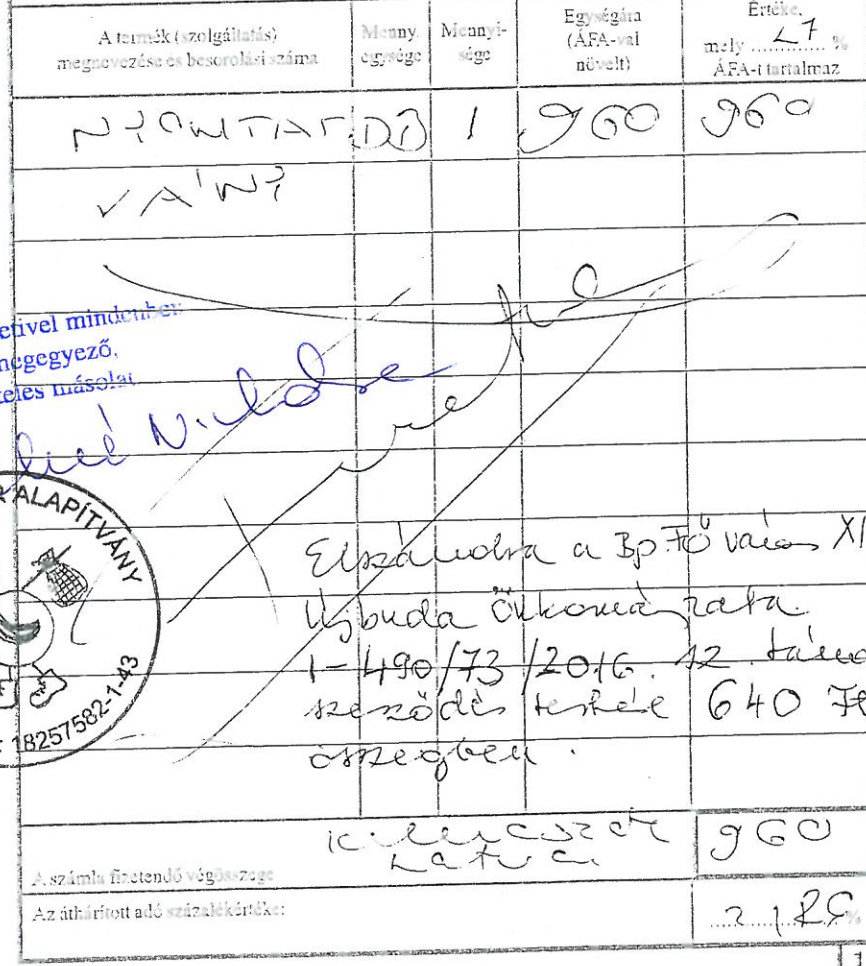 A termék (szolgáltatás)
megnevezése és besorolási száma
Menny.
egysége
Mennyi-
sége
Egységára
(ÁFA-val
növelt)
Értéke,
mely 27 %
ÁFA-t tartalmaz
NYOMTAT DB 1 960 960
VÁNY
etivel mindenben
megegyező,
teles másolat
ALAPÍTVÁNY
18257582-1-43
Elszámolva a Bp. Főváros XI
Újbuda Önkormányzata
1-490/73/2016. 12.
szerződés terhére 640 Ft
összegben.
A számla fizetendő végösszege
960
Az áthárított adó százalékértéke:
%